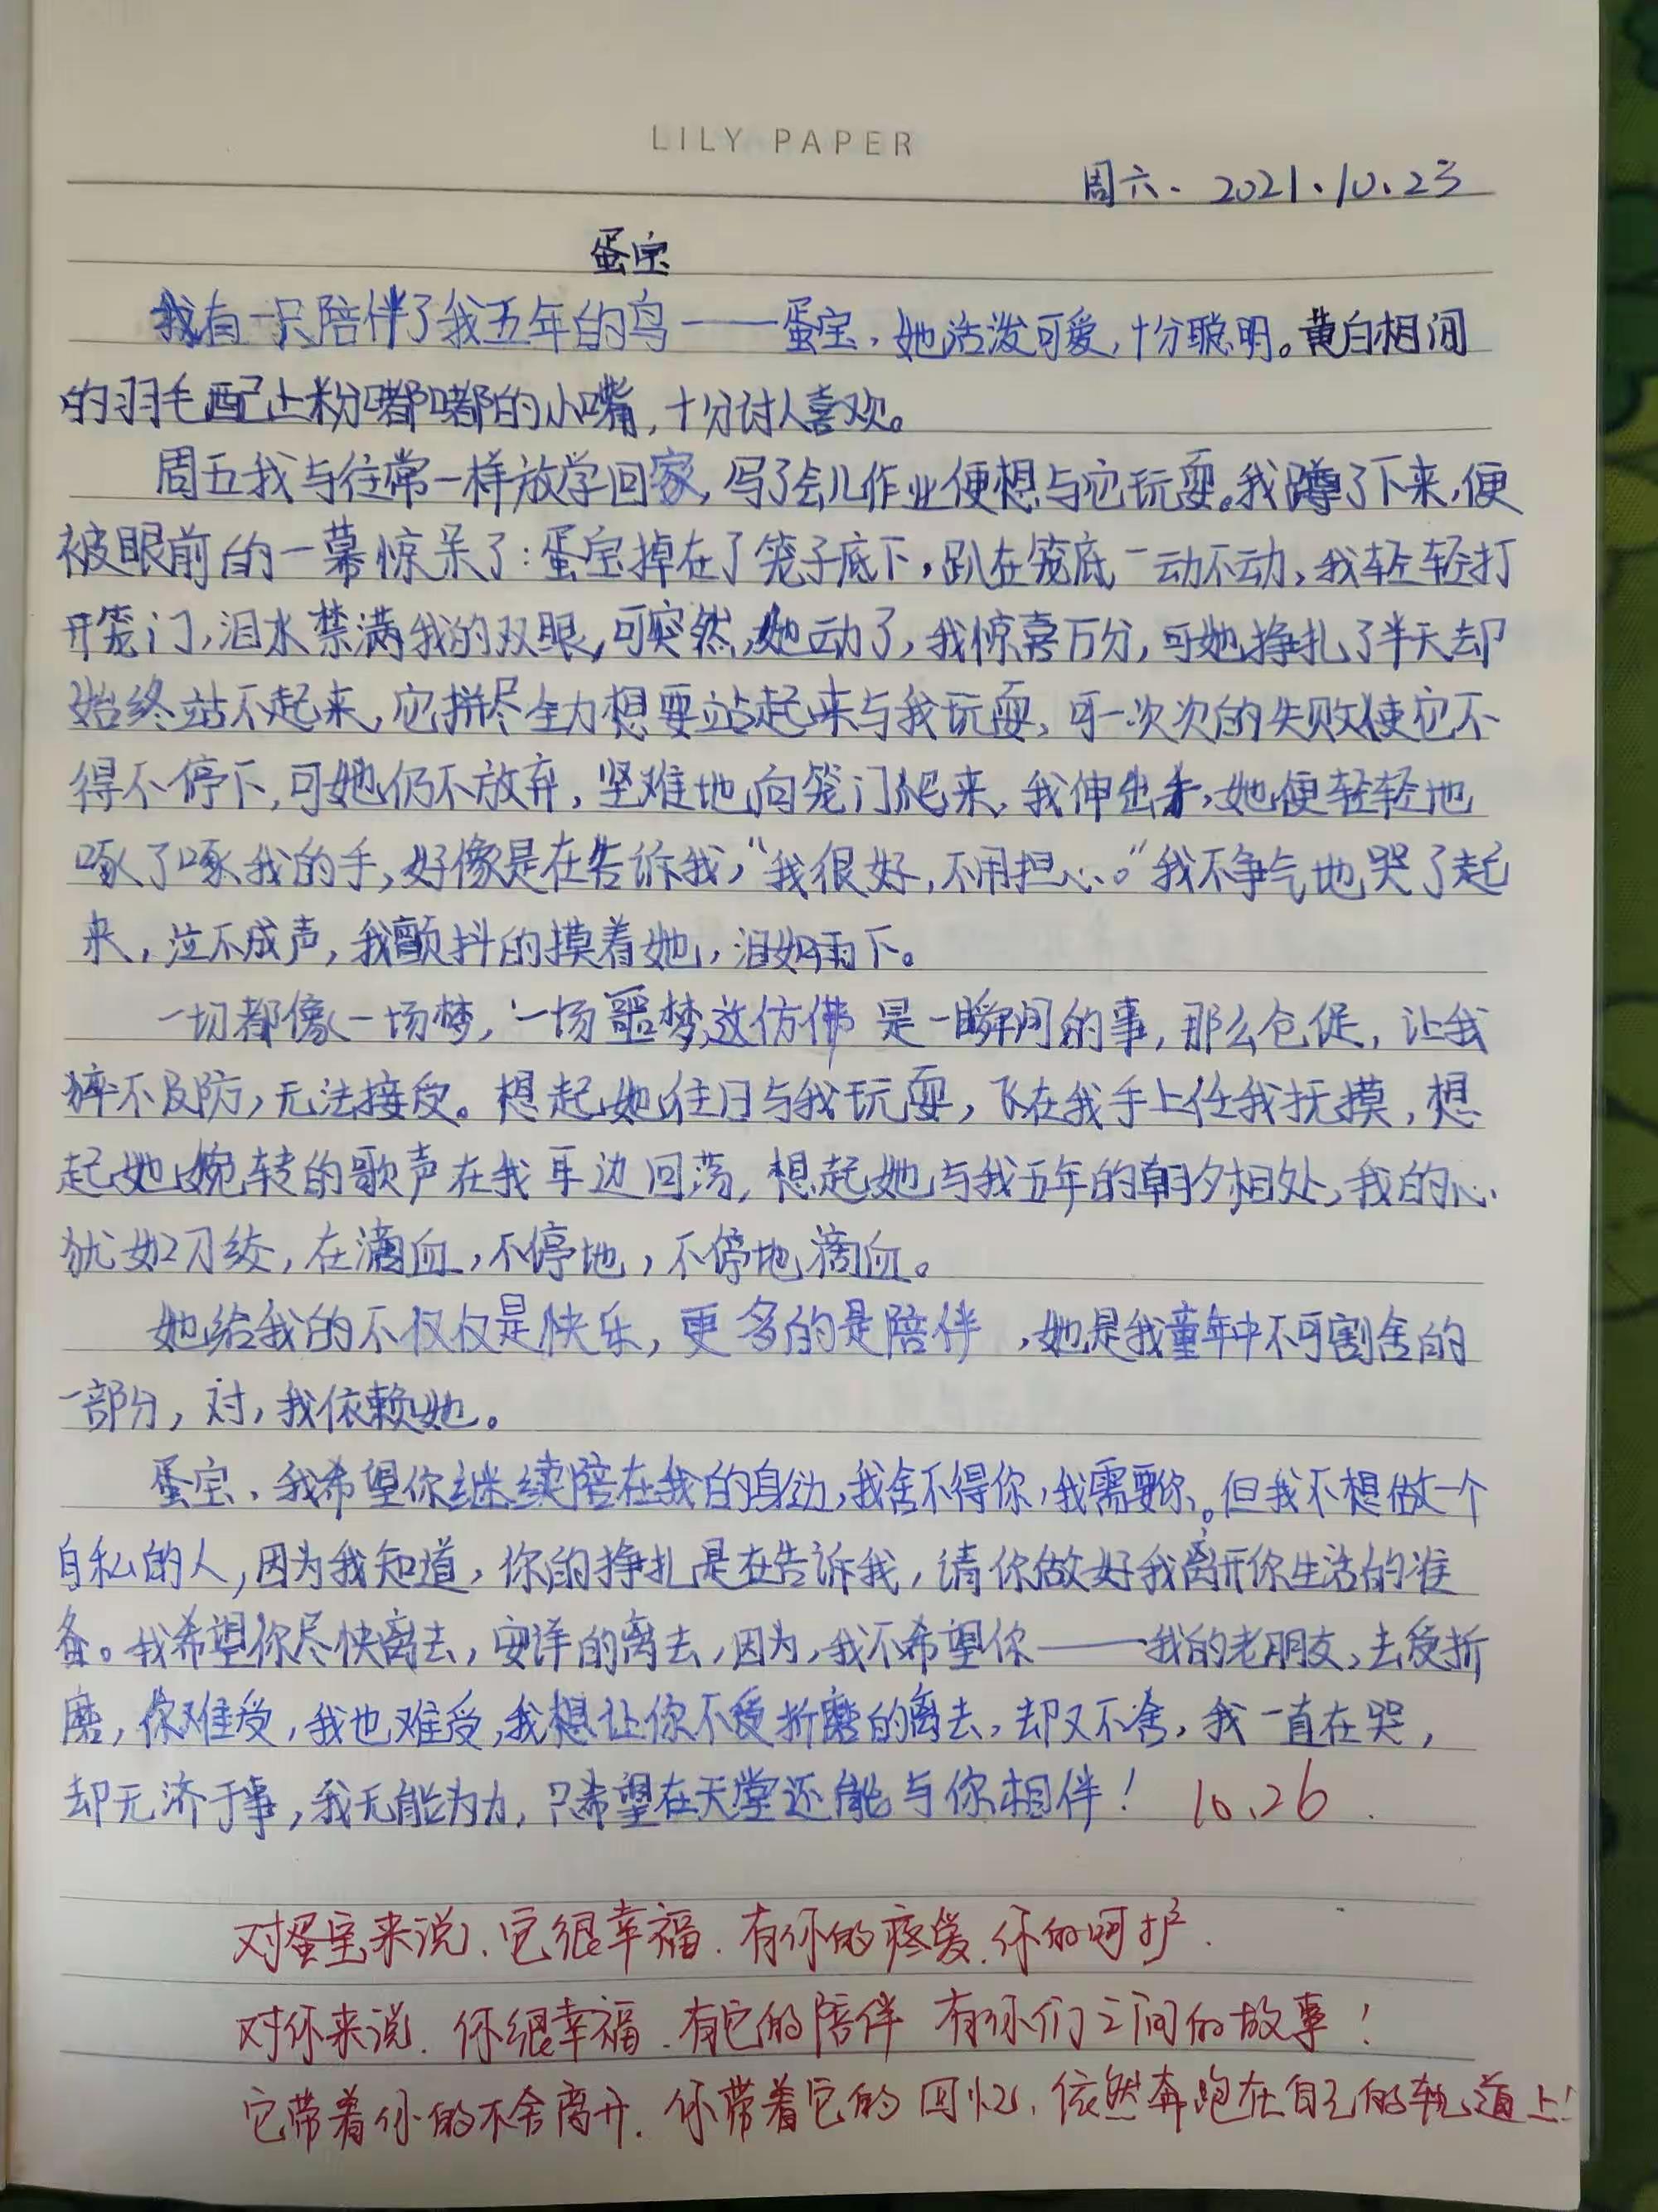 LILY PAPER
周六、2021.10.23
蛋宝
我有一只陪伴了我五年的鸟——蛋宝，她活泼可爱，十分聪明。黄白相间
的羽毛配上粉嘟嘟的小嘴，十分讨人喜欢。
周五我与往常一样放学回家，写了会儿作业便想与它玩耍。我蹲了下来，便
被眼前的一幕惊呆了：蛋宝掉在了笼子底下，趴在笼底一动不动，我轻轻打
开笼门，泪水禁满我的双眼，可突然，她动了，我惊喜万分，可她挣扎了半天却
始终站不起来，它拼尽全力想要站起来与我玩耍，可一次次的失败使它不
得不停下，可她仍不放弃，坚难地向笼门爬来，我伸出手，她便轻轻地
啄了啄我的手，好像是在告诉我，“我很好，不用担心。”我不争气地哭了起
来，泣不成声，我颤抖的摸着她，泪如雨下。
一切都像一场梦，一场噩梦，这仿佛是一瞬间的事，那么仓促，让我
猝不及防，无法接受。想起她往日与我玩耍，飞在我手上任我抚摸，想
起她婉转的歌声在我耳边回荡，想起她与我五年的朝夕相处，我的心
犹如刀绞，在滴血，不停地，不停地滴血。
她给我的不仅仅是快乐，更多的是陪伴，她是我童年中不可割舍的
一部分，对，我依赖她。
蛋宝、我希望你继续陪在我的身边，我舍不得你，我需要你。但我不想做一个
自私的人，因为我知道，你的挣扎是在告诉我，请你做好我离开你生活的准
备。我希望你尽快离去，安详的离去，因为，我不希望你——我的老朋友，去受折
磨，你难受，我也难受，我想让你不受折磨的离去，却又不舍，我一直在哭，
却无济于事，我无能为力，只希望在天堂还能与你相伴！ 10.26
对蛋宝来说、它很幸福．有你的疼爱．你的呵护．
对你来说．你很幸福．有它的陪伴 有你们之间的故事！
它带着你的不舍离开．你带着它的回忆．依然奔跑在自己的轨道上！